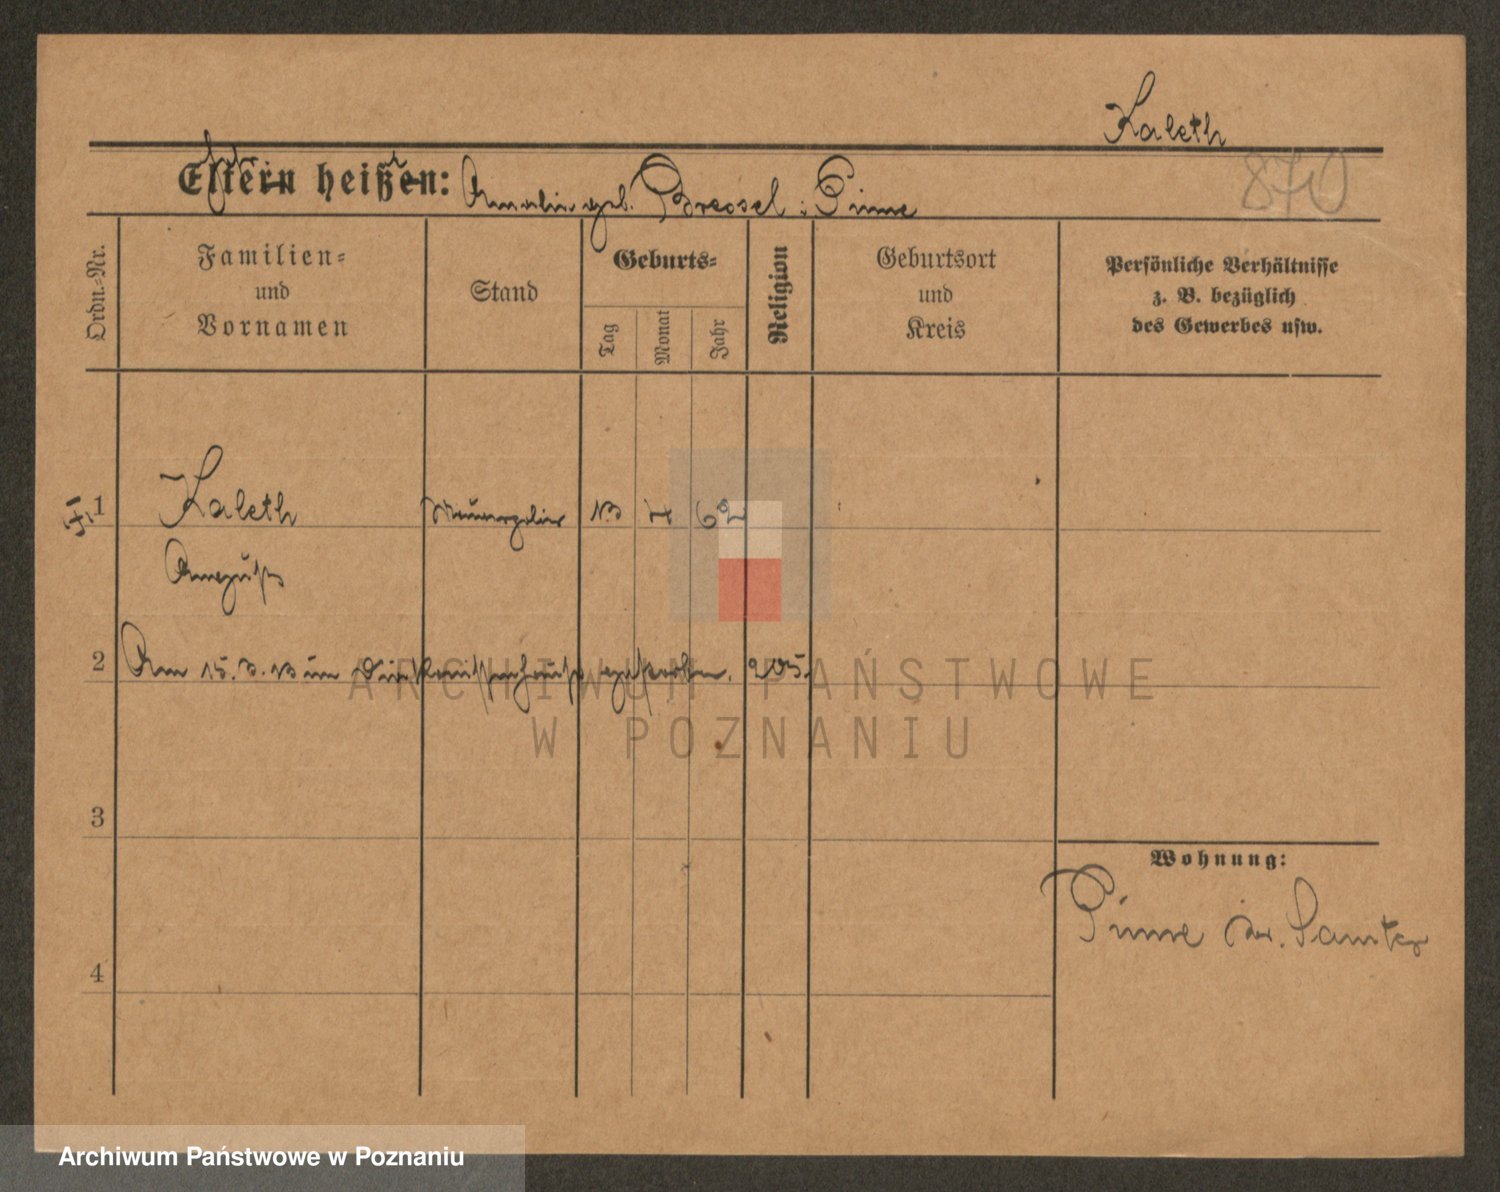 Kaleth
870
Eltern heißen: Amalie geb. Bressel i. Pinne
Ordn.-Nr.
Familien-
und
Vornamen
Stand
Geburts-
Tag
Monat
Jahr
Religion
Geburtsort
und
Kreis
Persönliche Verhältnisse
z. B. bezüglich
des Gewerbes usw.
1
Kaleth
13
62
August
2
Am 15. 3. 13 im gestorben. 205.
ARCHIWUM PAŃSTWOWE
W POZNANIU
3
Wohnung:
Pinne Kr. Samter
4
Archiwum Państwowe w Poznaniu